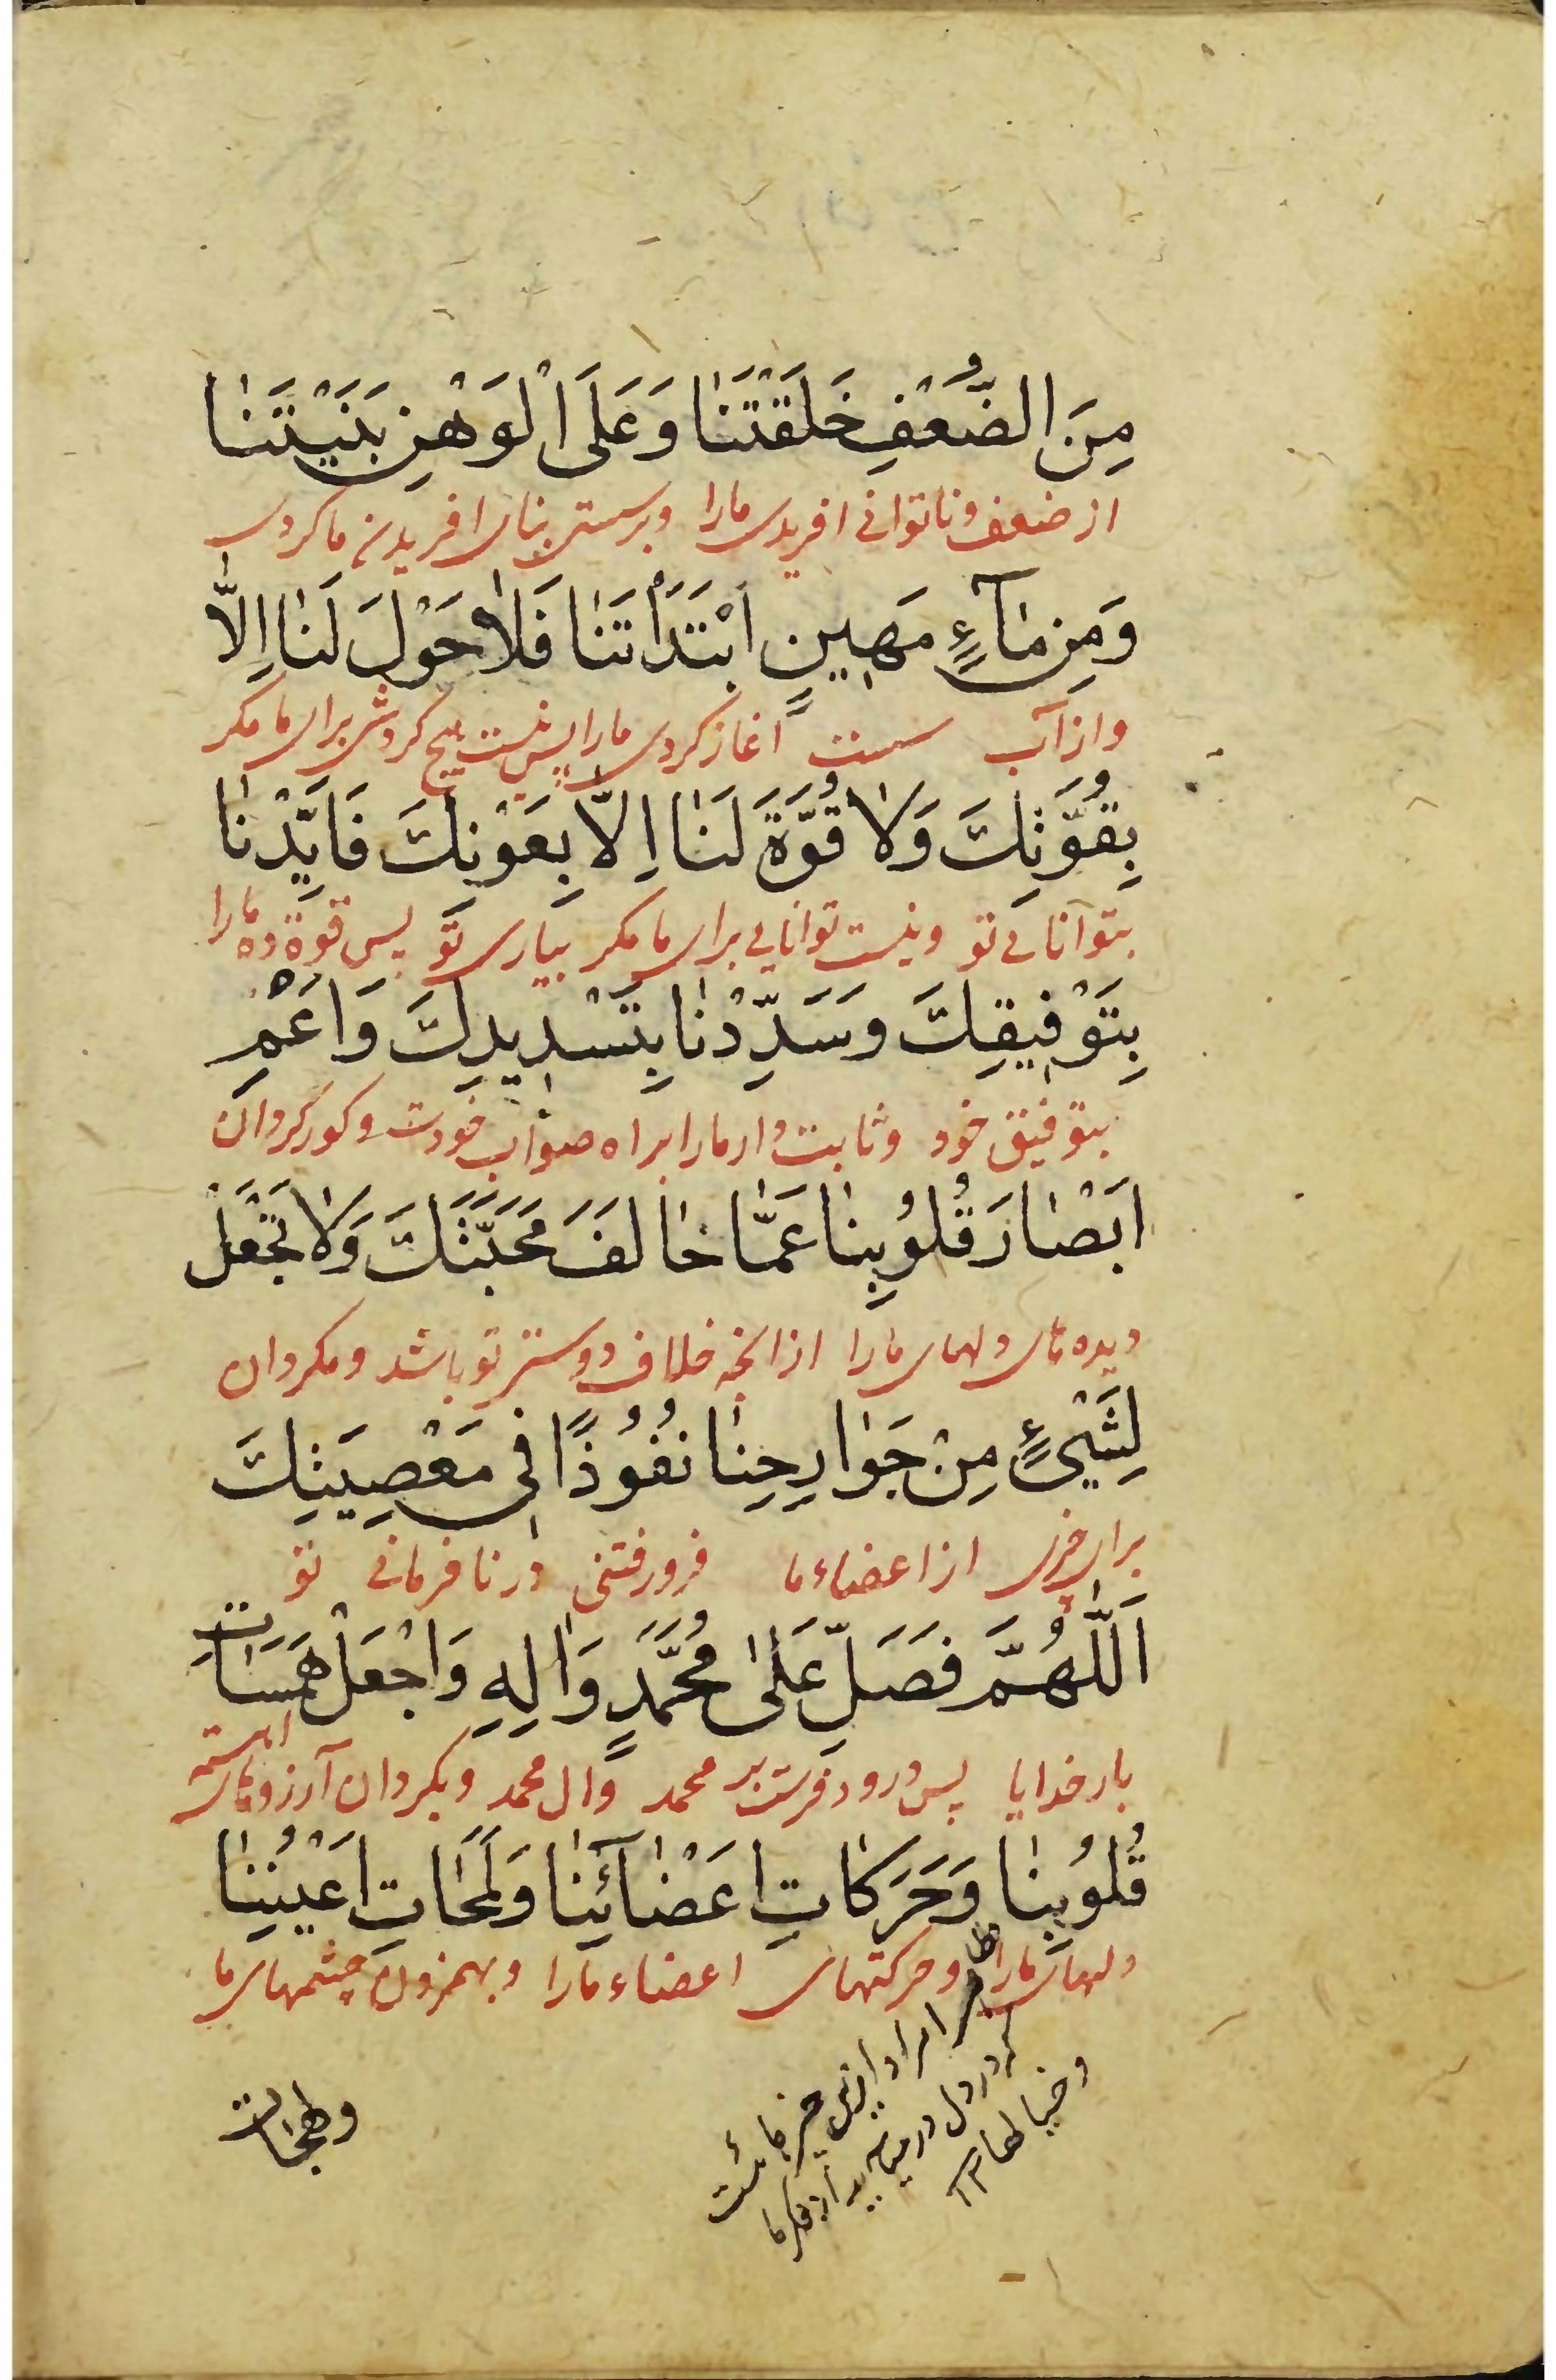 مِنَ الضُّعْفِ خَلَقْتَنَا وَعَلَى الْوَهْنِ بَنَيْتَنَا
از ضعف و ناتوانی افریدی مارا و بر سستی بنای افریدن ما کردی
وَمِن مَآءٍ مَهِينٍ ابْتَدَأْتَنَا فَلَا حَوْلَ لَنَا اِلَّا
و از آب سست آغاز کردی مارا پس نیست هیچ کردشی برای ما مکر
بِقُوَّتِكَ وَلَا قُوَّةَ لَنَا اِلَّا بِعَوْنِكَ فَاَيِّدْنَا
بتوانایی تو و نیست توانایی برای ما مکر بیاری تو پس قوة ده مارا
بِتَوْفِيقِكَ وَسَدِّدْنَا بِتَسْدِيدِكَ وَاَعْمِ
بتوفیق خود و ثابت دار مارا براه صواب خودت و کور کردان
اَبْصَارَ قُلُوبِنَا عَمَّا خَالَفَ مَحَبَّتَكَ وَلَا تَجْعَلْ
دیده های دلهای مارا از انچه خلاف دوستی تو باشد و مکردان
لِشَيْءٍ مِنْ جَوَارِحِنَا نُفُوذًا فِي مَعْصِيَتِكَ
برای چیزی از اعضاء ما فرورفتنی در نافرمانی تو
اَللّٰهُمَّ فَصَلِّ عَلٰى مُحَمَّدٍ وَاٰلِهِ وَاجْعَلْ هَمَسَاتِ
بار خدایا پس درود فرست بر محمد و ال محمد و بکردان آرزوهای
اهسته
قُلُوبِنَا وَحَرَكَاتِ اَعْضَائِنَا وَلَمَحَاتِ اَعْيُنِنَا
دلهای مارا و حرکتهای اعضاء مارا و بهمزدن چشمهای ما
وخیالها
ولهجات